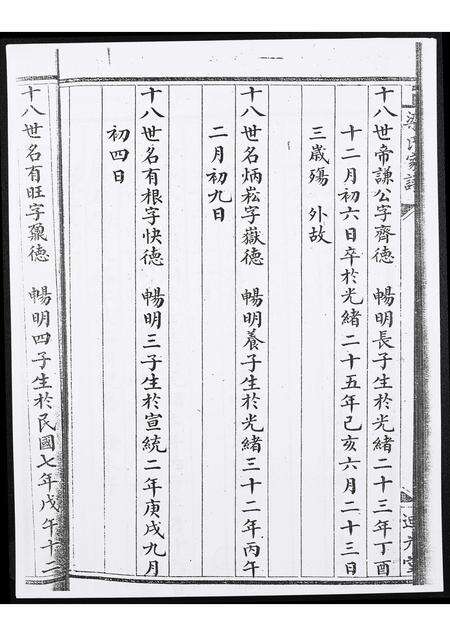 梁氏家譜
十八世帝謙公字齊德 暢明長子生於光緒二十三年丁酉
十二月初六日卒於光緒二十五年己亥六月二十三日
三歲殤 外故
十八世名炳崧字嶽德 暢明養子生於光緒三十二年丙午
二月初九日
十八世名有根字快德 暢明三子生於宣統二年庚戌九月
初四日
十八世名有旺字彙德 暢明四子生於民國七年戊午十二